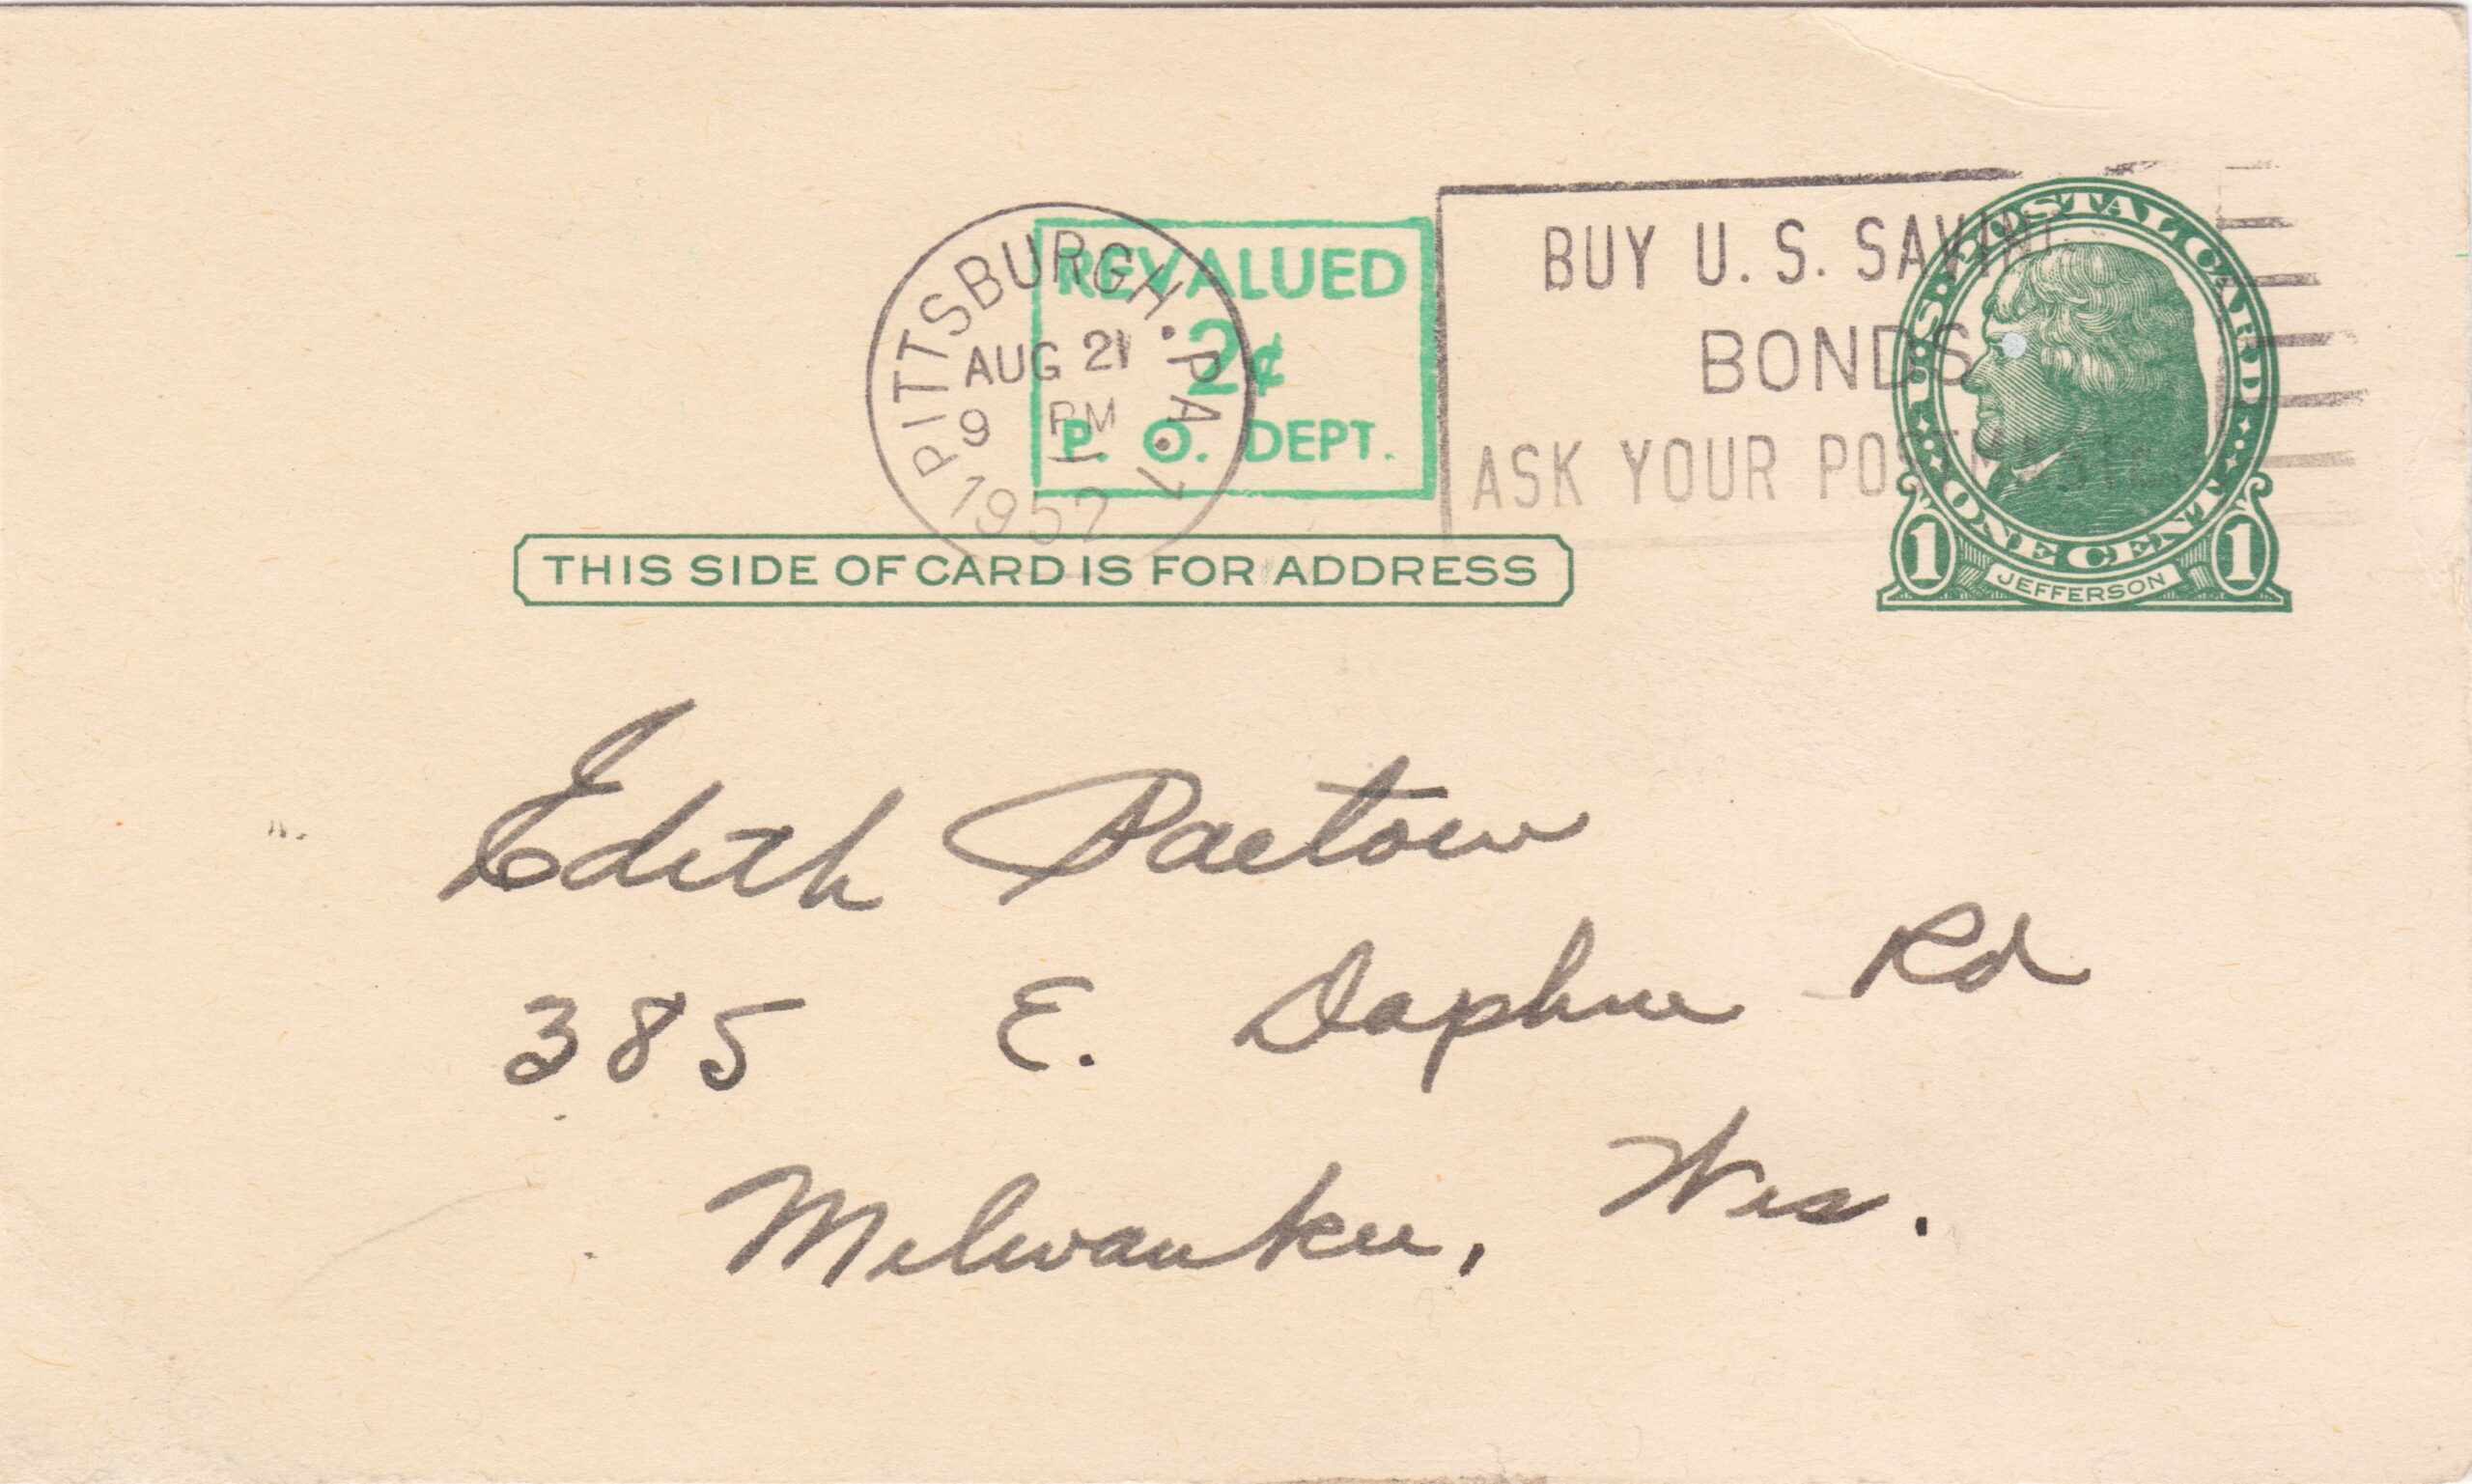 PITTSBURGH. PA. 1
AUG 21
9 PM
1957
REVALUED
2¢
P. O. DEPT.
BUY U. S. SAVIN
BONDS
ASK YOUR POSTMASTER
U·S·POSTAL CARD
ONE CENT
1 JEFFERSON 1
THIS SIDE OF CARD IS FOR ADDRESS
Edith Paetow
385 E. Daphne Rd
Milwaukee, Wis.